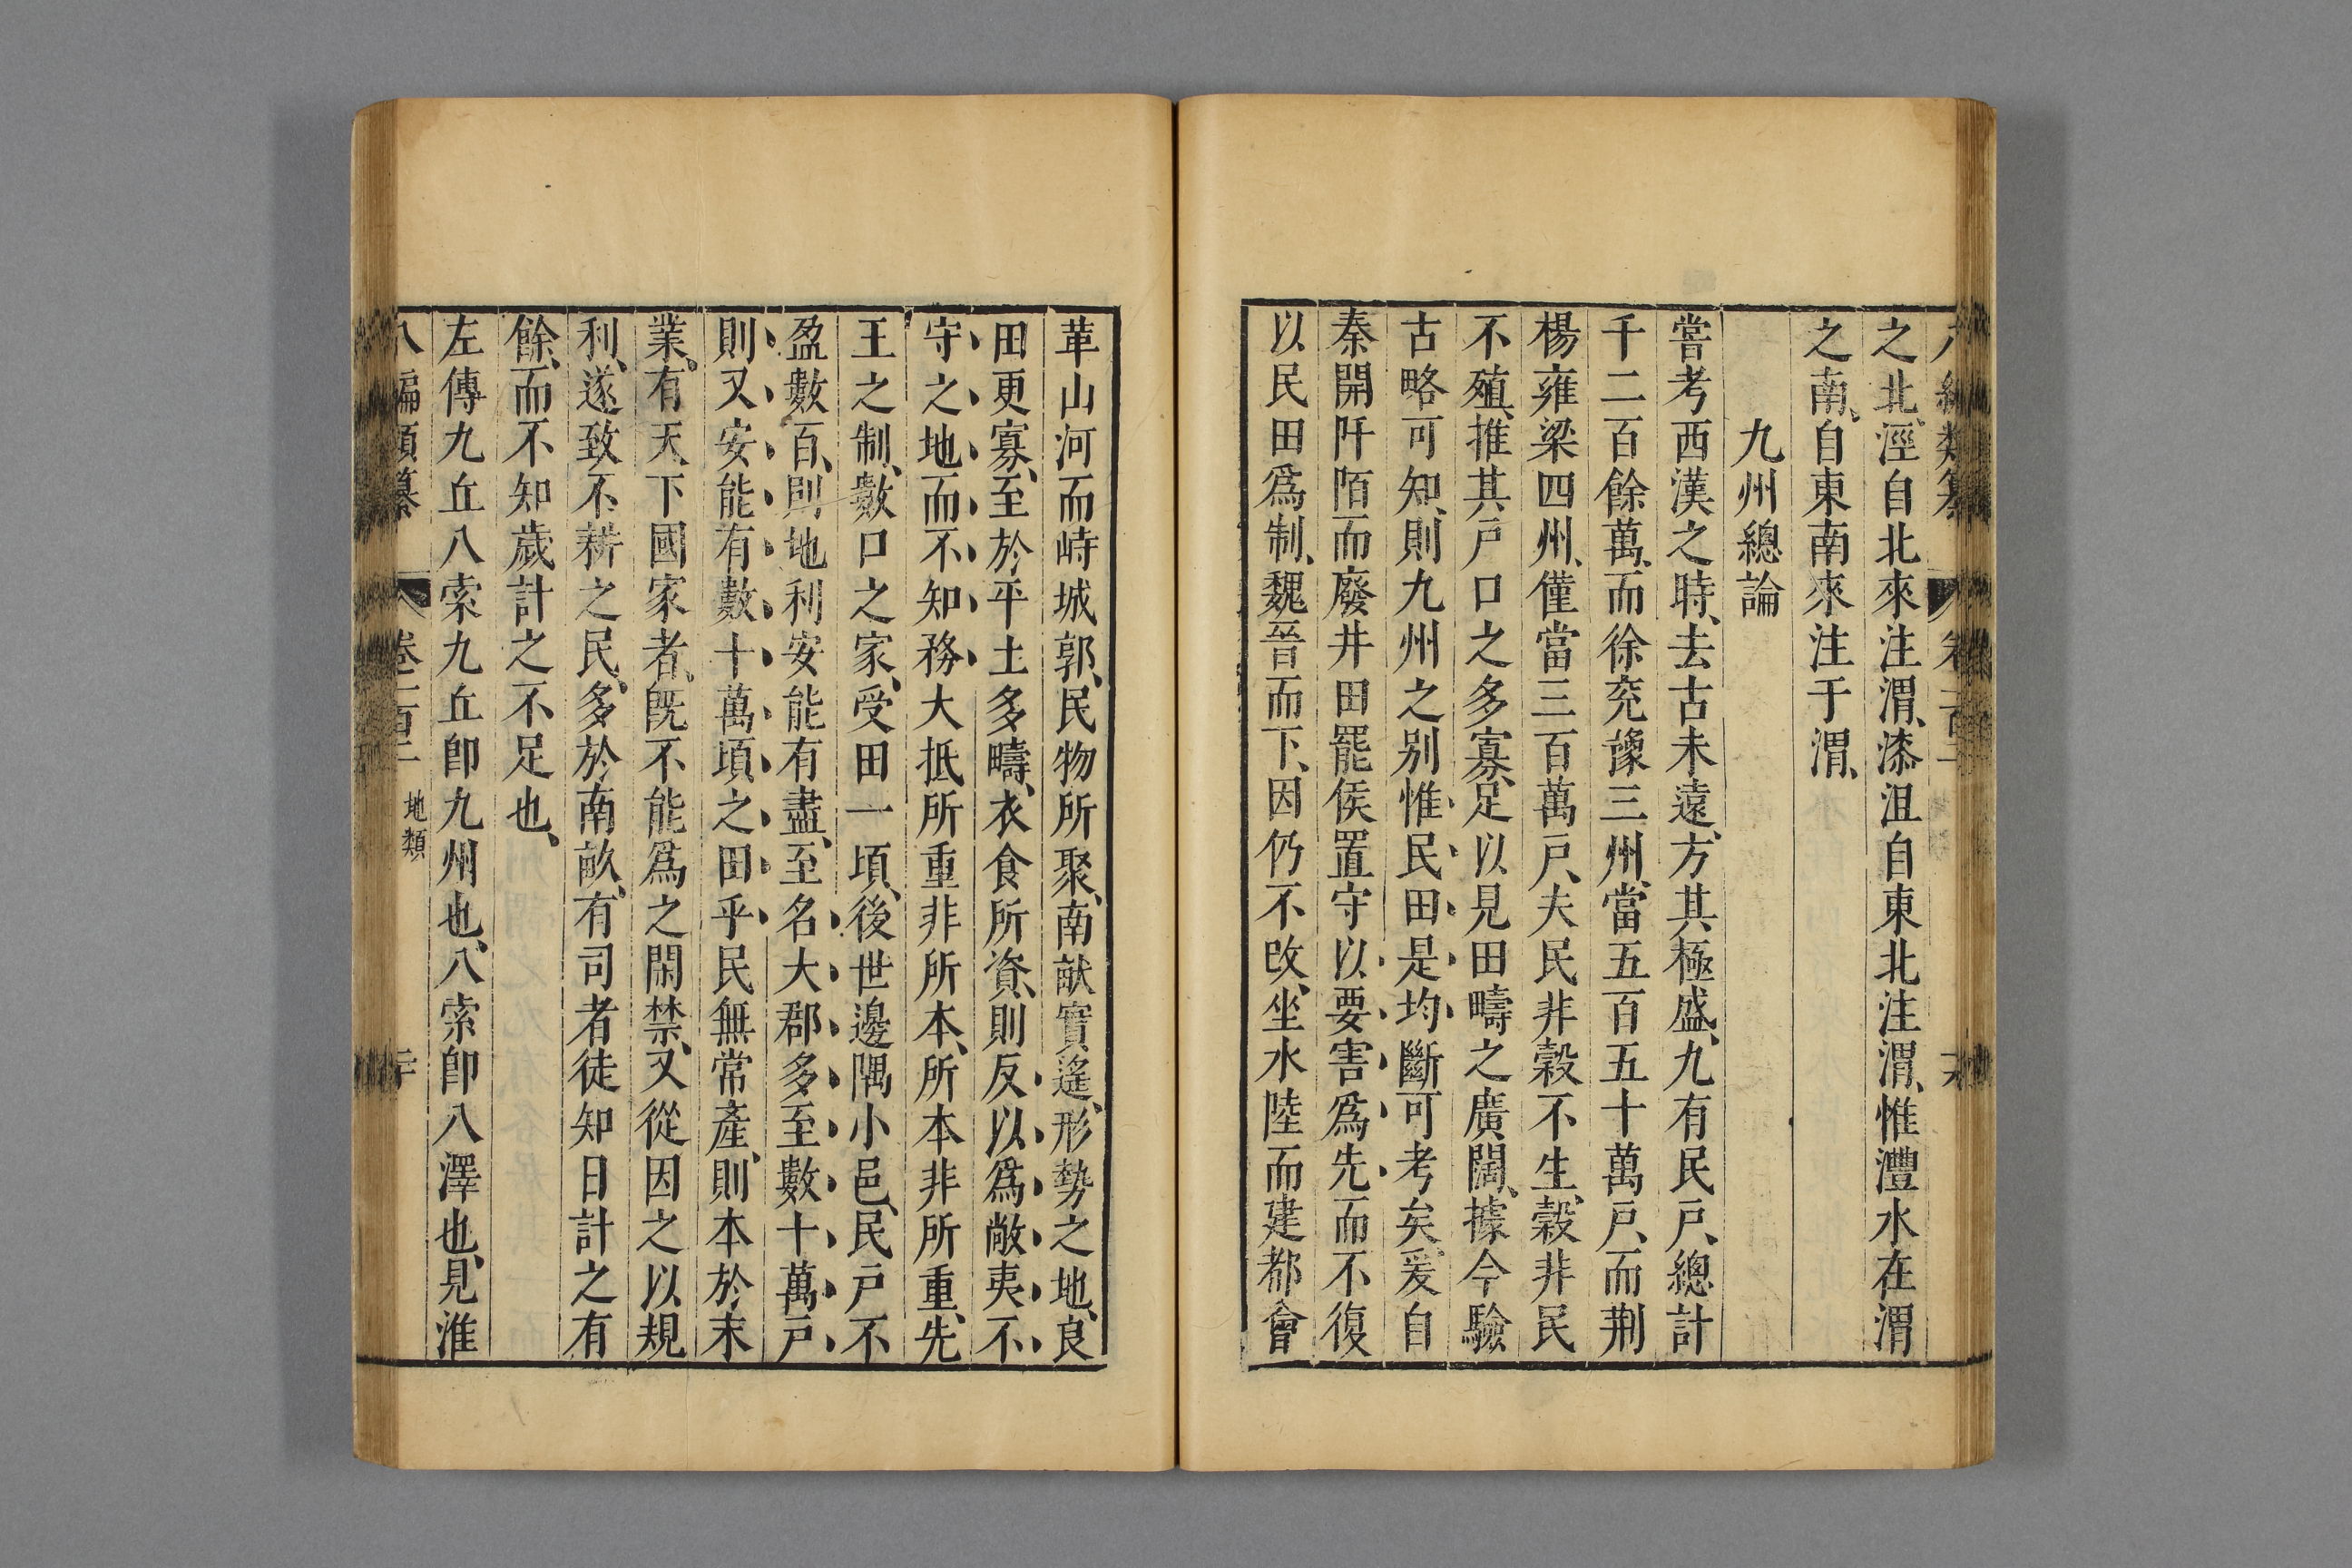 之北涇自北來注渭漆沮自東北注渭惟灃水在渭
之南自東南來注于渭
九州總論
嘗考西漢之時去古未遠方其極盛九有民戸總計
千二百餘萬而徐兖豫三州當五百五十萬戸而荆
楊雍梁四州僅當三百萬戸夫民非榖不生榖非民
不殖推其戸口之多寡足以見田疇之廣闊據今驗
古略可知則九州之别惟民田是均斷可考矣爰自
秦開阡陌而廢井田罷侯置守以要害爲先而不復
以民田爲制魏晉而下因仍不改坐水陸而建都會
革山河而峙城郭民物所聚南献實遙形勢之地良
田更寡至於平土多疇衣食所資則反以爲敞夷不
守之地而不知務大抵所重非所本所本非所重先
王之制數口之家受田一頃後世邊隅小邑民戸不
盈數百則地利安能有盡至名大郡多至數十萬戸
則又安能有數十萬頃之田乎民無常產則本於末
業有天下國家者旣不能爲之閑禁又從因之以規
利遂致不耕之民多於南畝有司者徒知日計之有
餘而不知歲計之不足也
左傳九丘八索九丘卽九州也八索卽八澤也見淮
八編類纂
卷一百二
地類
二十